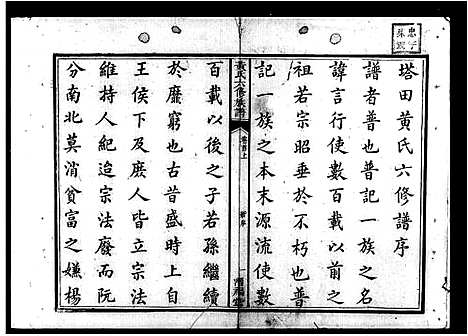 塔田黃氏六修譜序
譜者普也普記一族之名
諱言行使數百載以前之
祖若宗昭垂於不朽也免
記一族之本末源流使數
黃氏六修族譜
卷首上
新序
百載以後之子若孫繼續
於靡窮也古昔盛時上自
王侯下及庶人皆立宗法
維持人紀迨宗法廢而阮
分南北莫消貧富之嫌楊